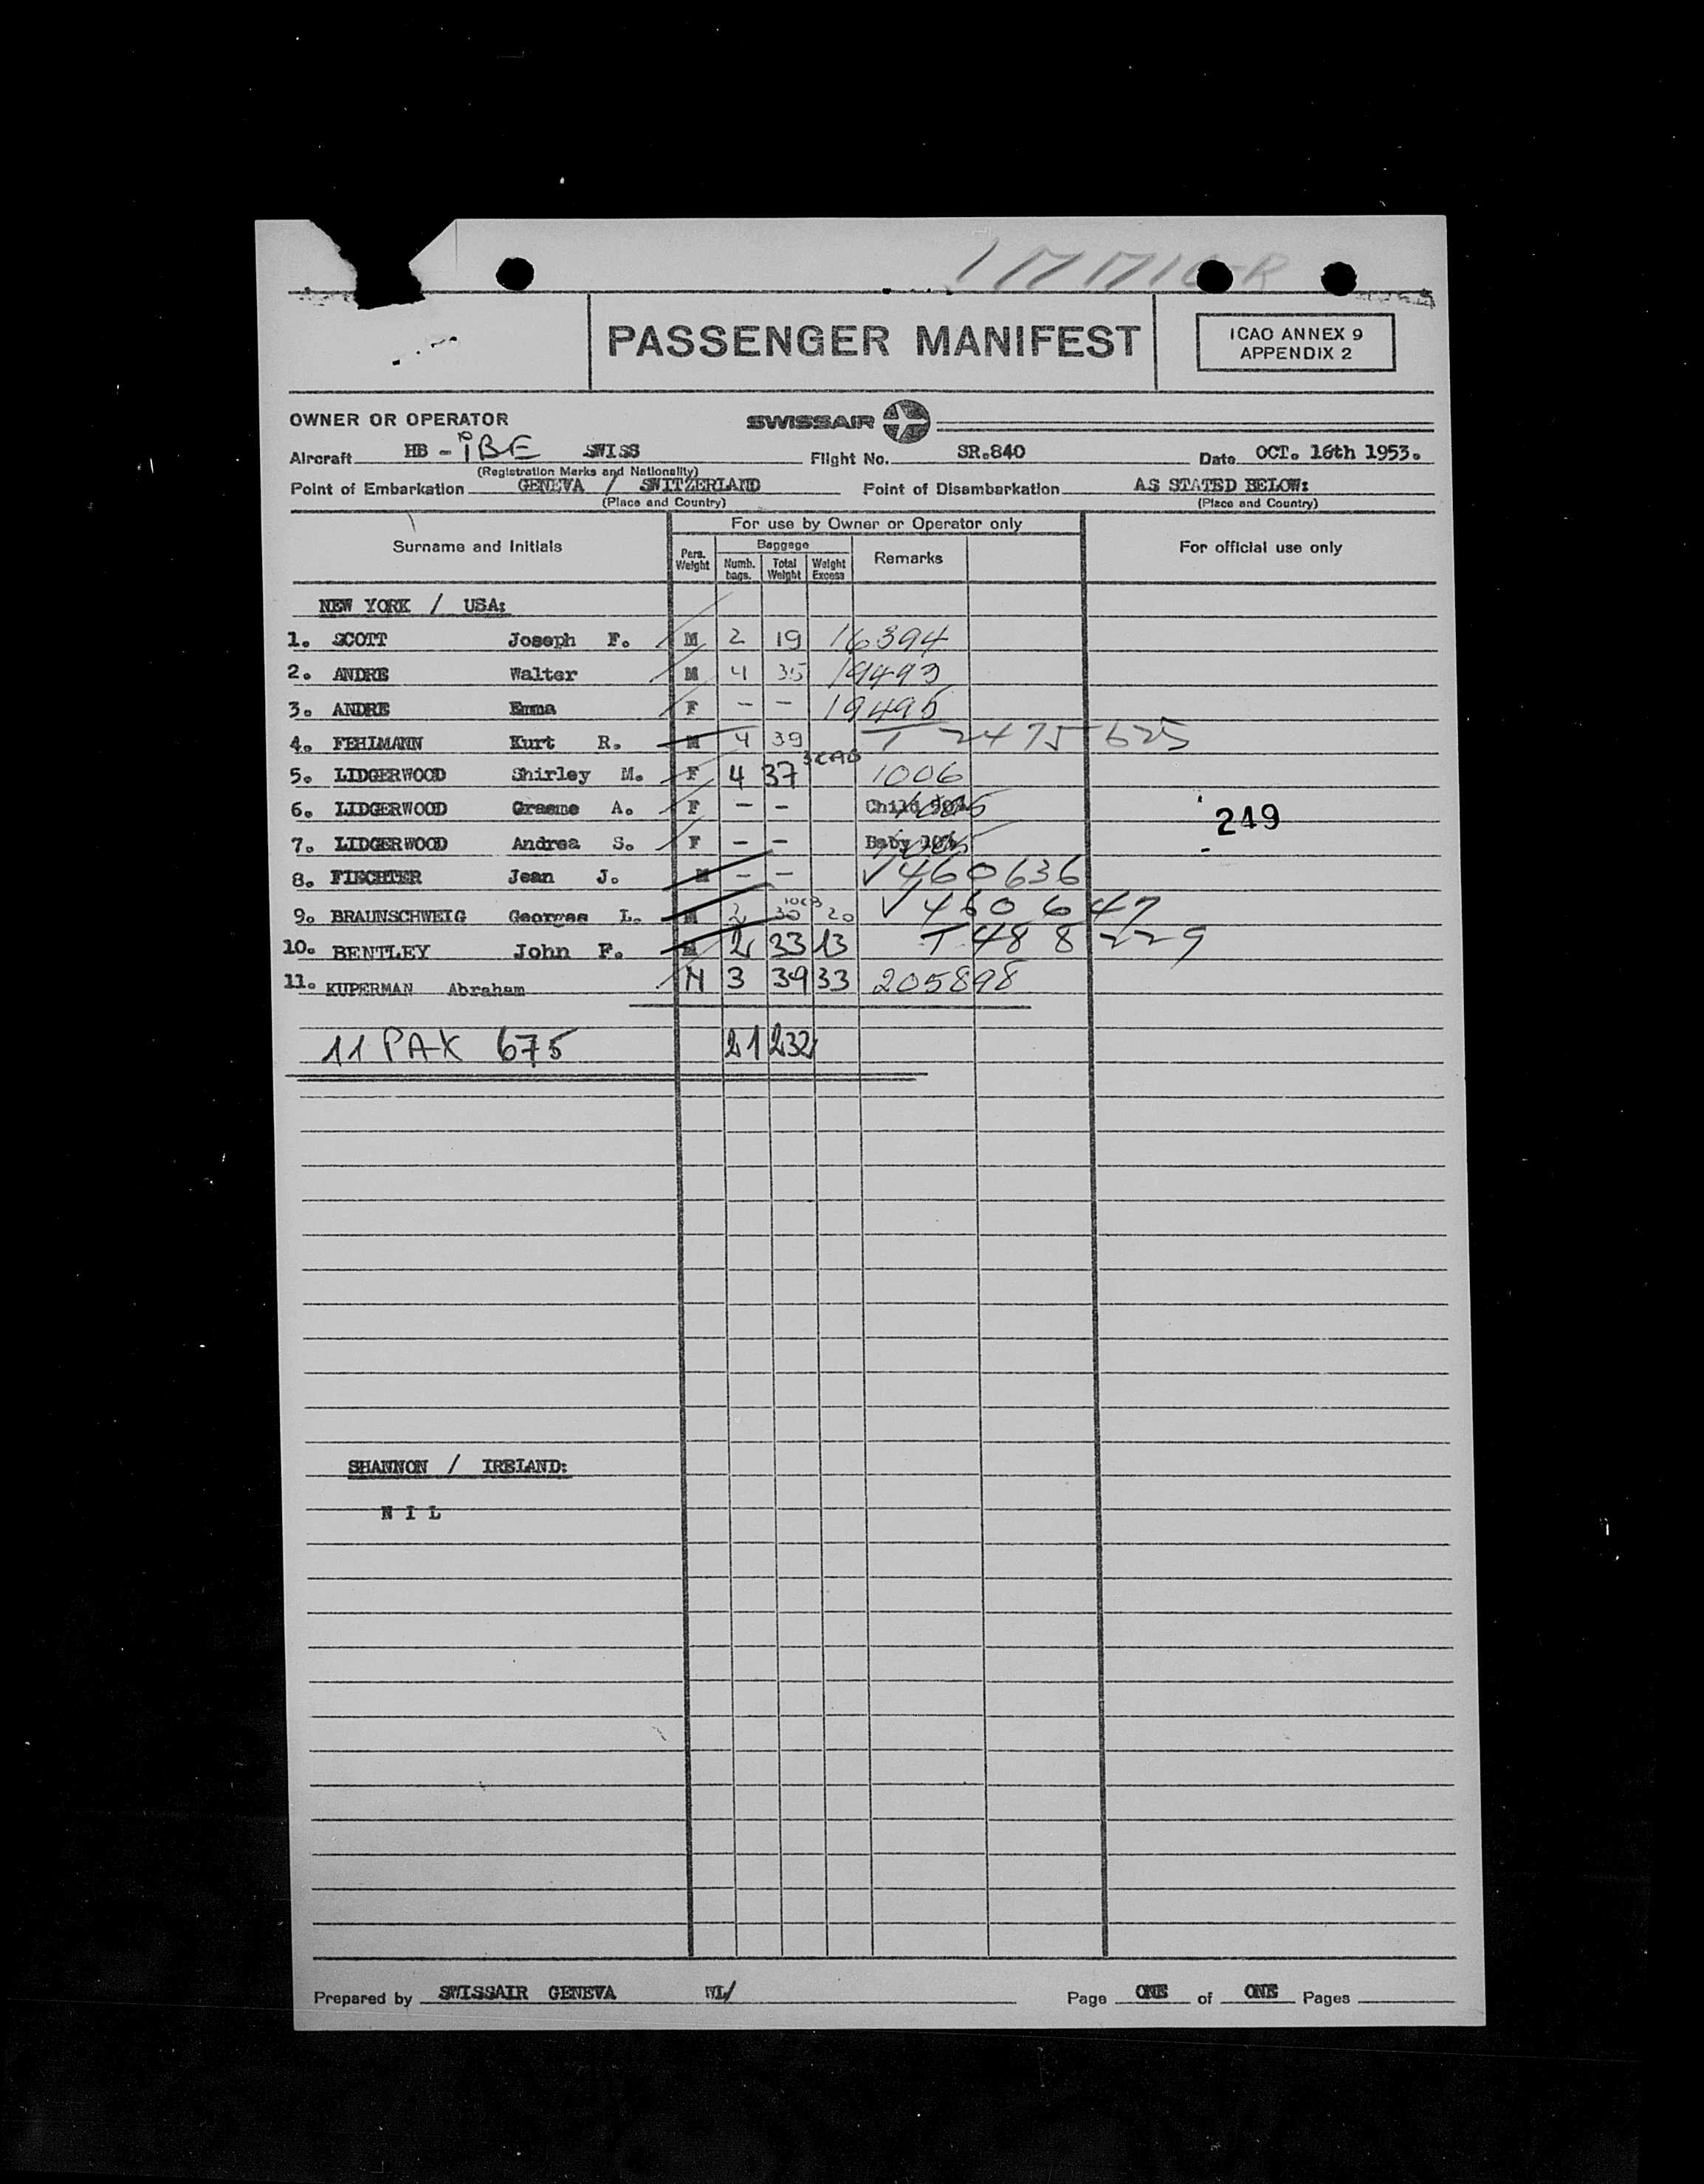 PASSENGER MANIFEST
ICAO ANNEX 9
APPENDIX 2
OWNER OR OPERATOR
SWISSAIR
Aircraft HB - iBE SWISS Flight No. SR.840 Date OCT. 16th 1953.
(Registration Marks and Nationality)
Point of Embarkation GENEVA / SWITZERLAND Point of Disembarkation AS STATED BELOW:
(Place and Country) (Place and Country)
For use by Owner or Operator only
Surname and Initials Pers. Weight Baggage Remarks For official use only
Numb. bags. Total Weight Weight Excess
NEW YORK / USA:
1. SCOTT Joseph F. M 2 19 16394
2. ANDRE Walter M 4 35 19493
3. ANDRE Emma F - - 19495
4. FEHLMANN Kurt R. M 4 39 T 2475625
5. LIDGERWOOD Shirley M. F 4 37 1006
6. LIDGERWOOD Graeme A. F - - Child 50%
249
7. LIDGERWOOD Andrea S. F - - Baby 10%
8. FIECHTER Jean J. M - - √460636
9. BRAUNSCHWEIG Georges L. M 2 30 20 √460647
10. BENTLEY John F. M 2 33 13 T 488229
11. KUPERMAN Abraham M 3 39 33 205898
11 PAX 675 21 232
SHANNON / IRELAND:
N I L
Prepared by SWISSAIR GENEVA WL/ Page ONE of ONE Pages